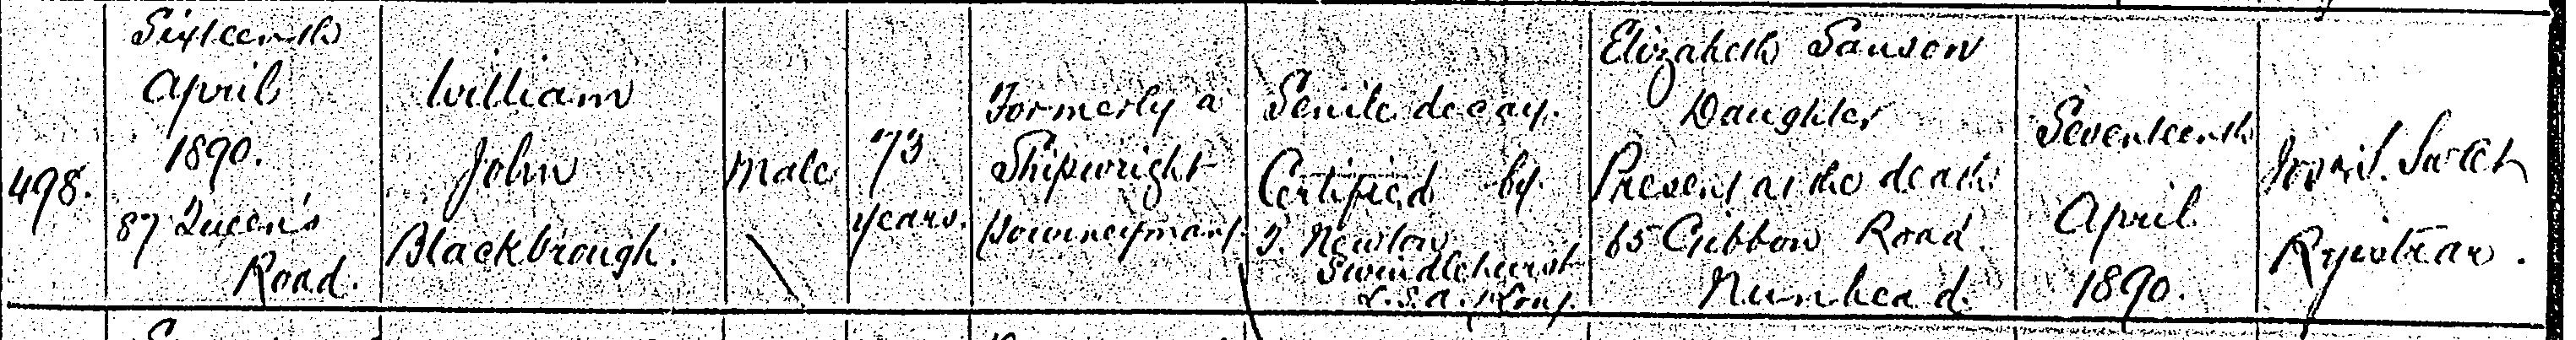 498.
Sixteenth
April
1890.
87 Queen's
Road.
William
John
Blackbrough.
Male
73
years.
Formerly a
Shipwright
(Journeyman).
Senile decay.
Certified by
J. Newton
Swindlehurst
L.S.A. Lond.
Elizabeth Sanson
Daughter
Present at the death
65 Gibbon Road
Nunhead.
Seventeenth
April
1890.
Registrar.